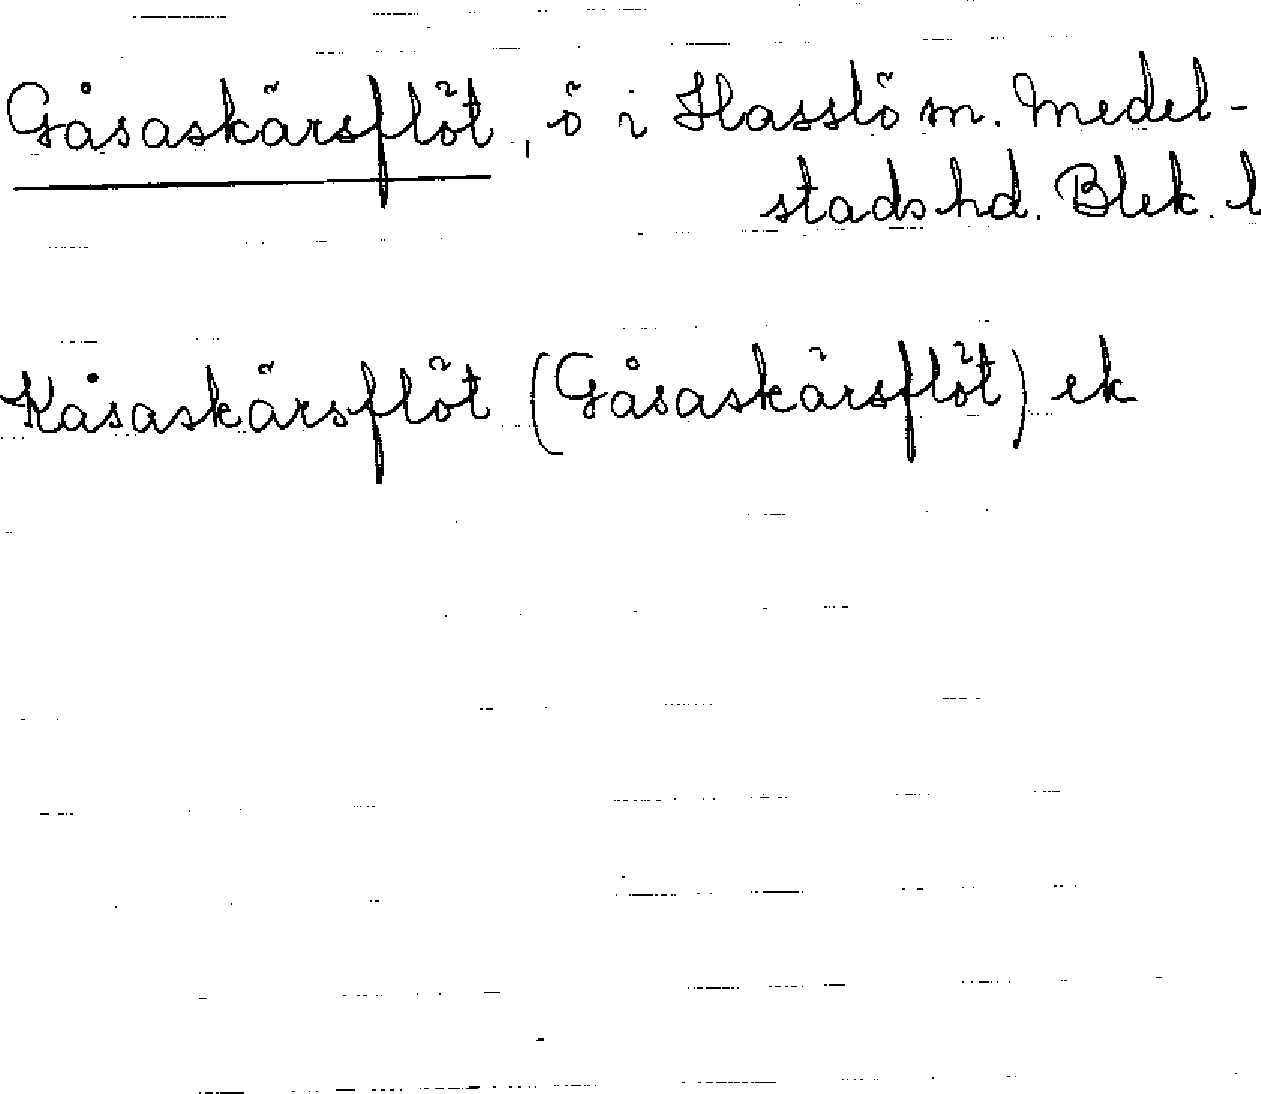 Gåsaskärsflöt, ö i Hasslö sn. Medel-
stads hd. Blek. l
Kåsaskärsflöt (Gåsaskärsflöt) ek